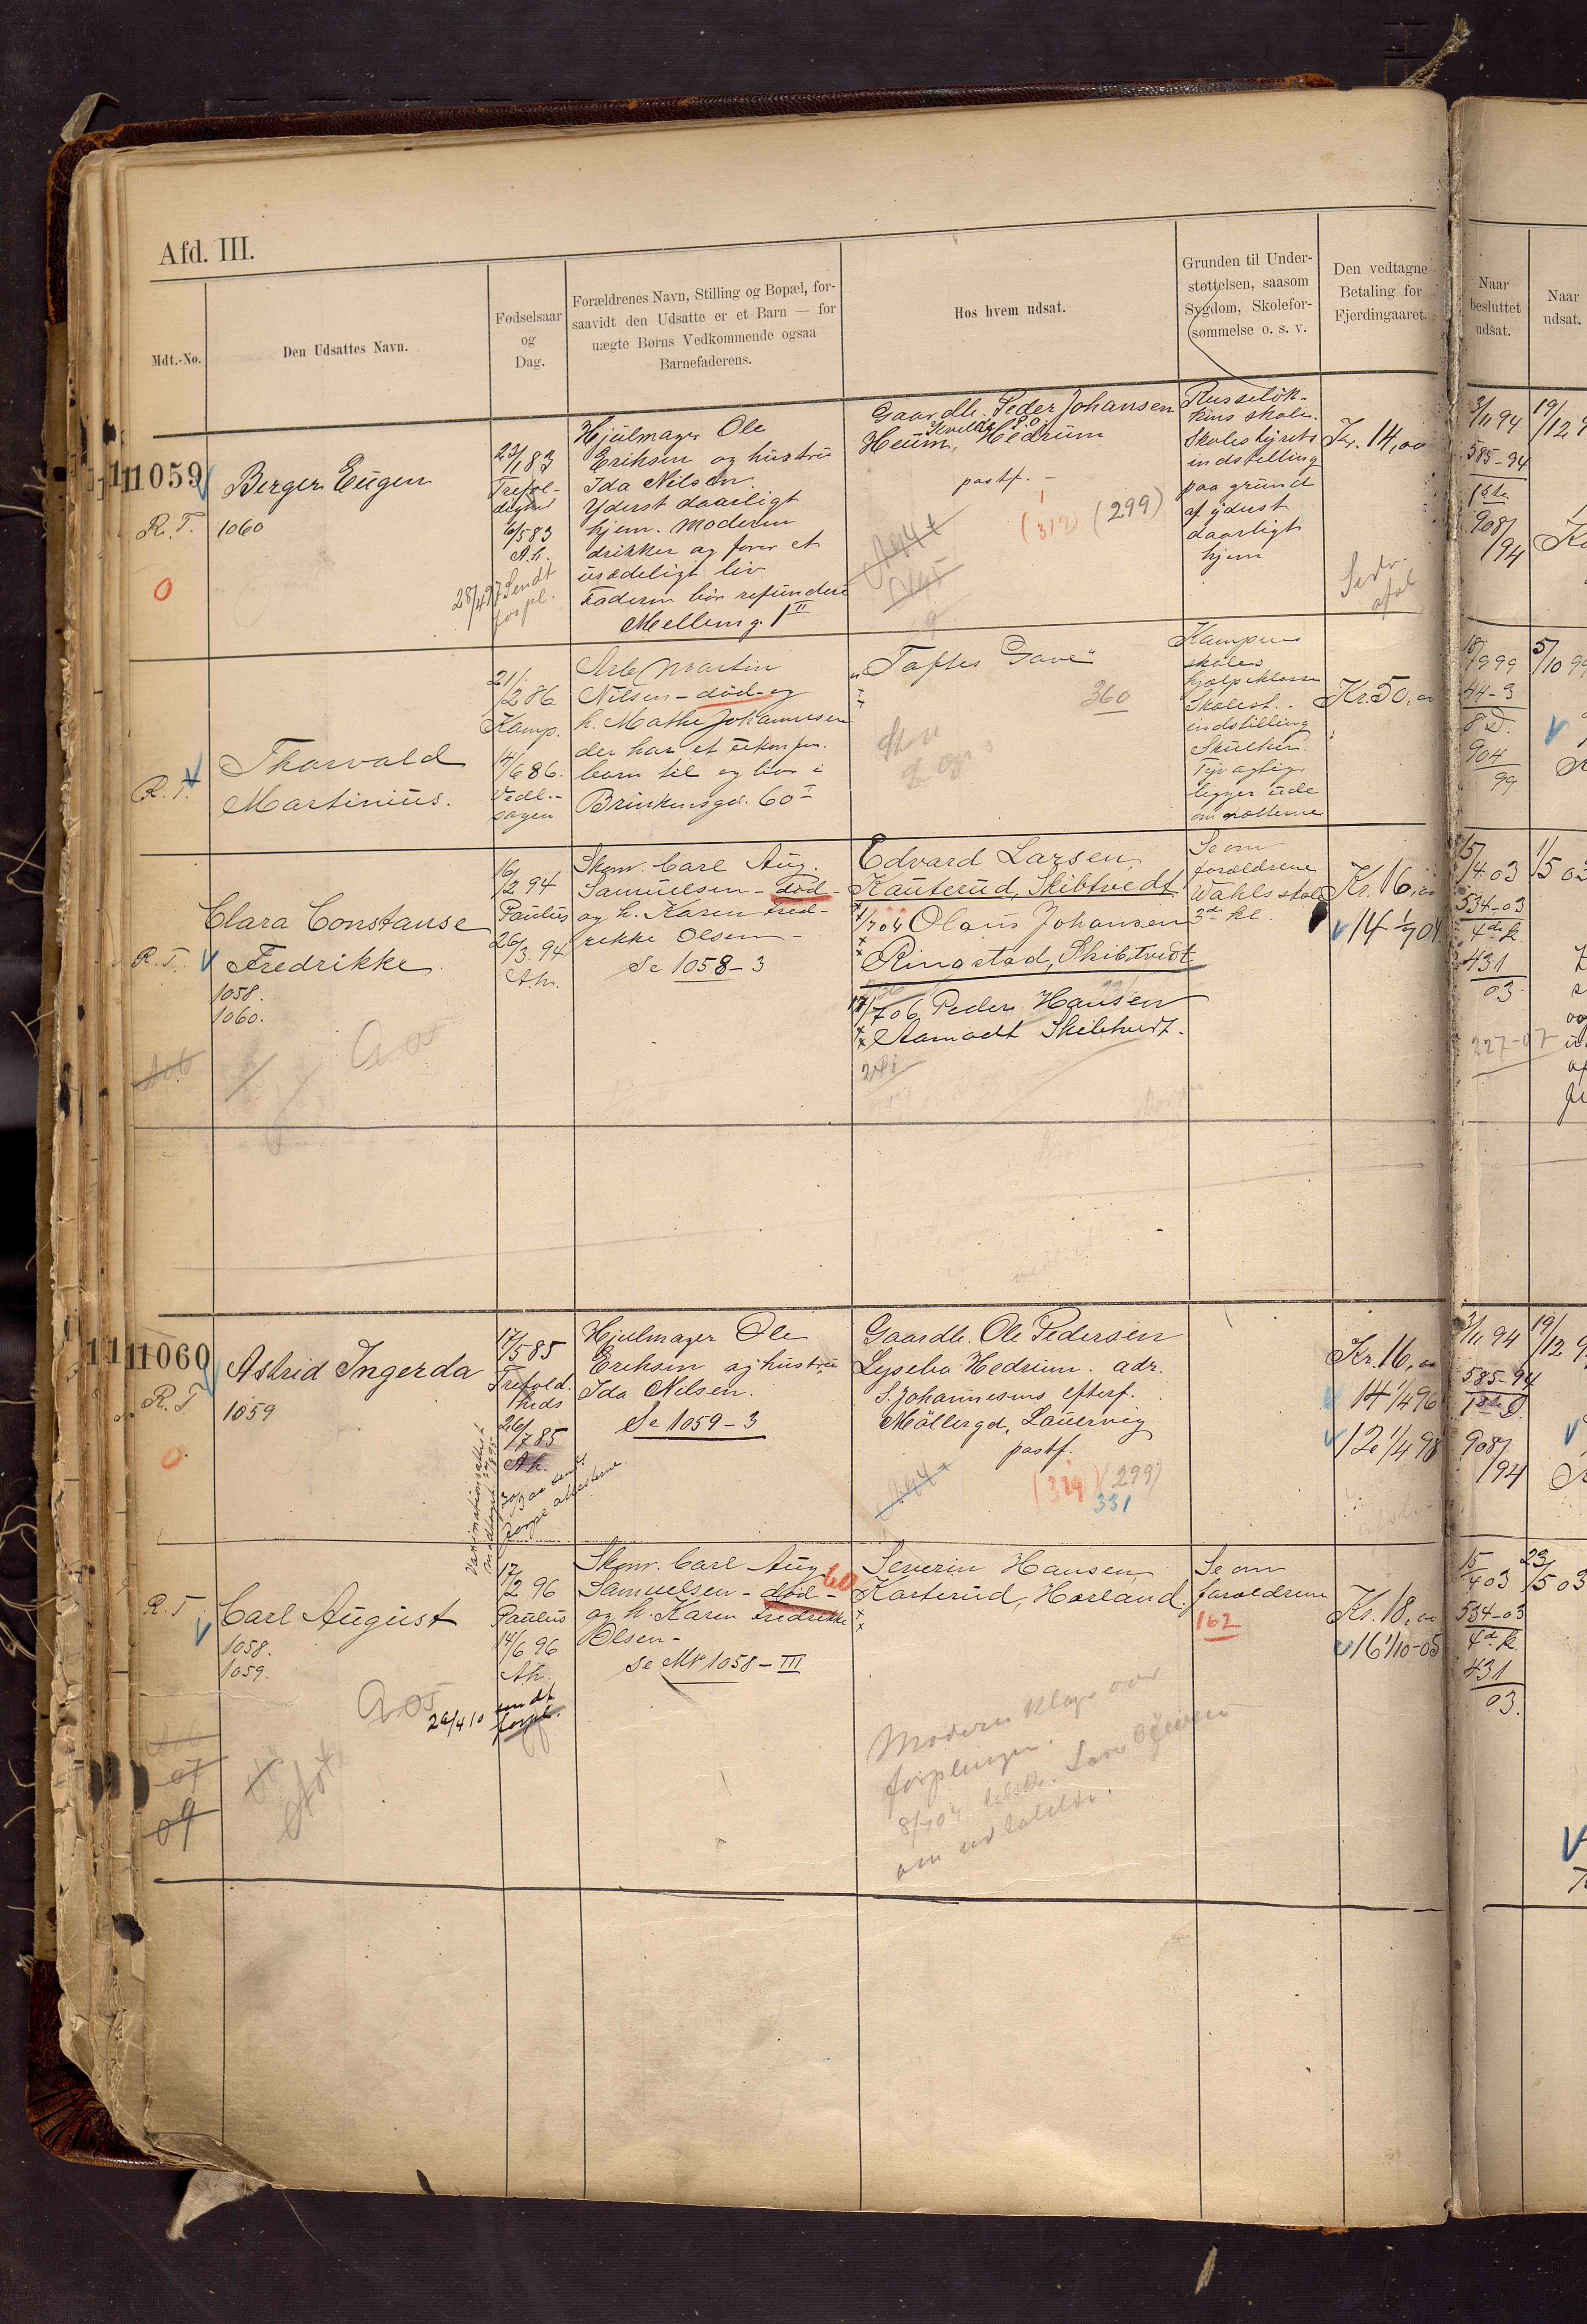 Afd. III.
Mdt.-No.
Den Udsattes Navn.
Fødselsaar
og
Dag.
Forældrenes Navn, Stilling og Bopæl, for-
saavidt den Udsatte er et Barn — for
uægte Børns Vedkommende ogsaa
Barnefaderens.
Hos hvem udsat.
Grunden til Under-
støttelsen, saasom
Sygdom, Skolefor-
sømmelse o. s. v.
Den vedtagne
Betaling for
Fjerdingaaret.
Naar
besluttet
udsat.
Naar
udsat.
1059
R. T.
0
Berger Eugen
1060
23/1 83
Trefol-
dighed
6/5 83
A.h.
28/4 97 Sendt
forpl.
Hjulmager Ole
Eriksen og hustru
Ida Nilsen.
Yderst daarligt
hjem. Moderen
drikker og fører et
usædeligt liv.
Faderen bør refundere
Melleng. 1 II
Gaardbr. Peder Johansen
Heum, Hedrum
postf. -
(319) (299)
Russeløk-
kens skole.
Skolestyrets
indstilling
paa grund
af yderst
daarligt
hjem
Kr. 14,00
3/11 94
585-94
908/94
19/12 9
R. T.
Thorvald
Martinius.
21/2 86
Kamp.
14/6 86.
Vedl.-
sagen
Arb. Martin
Nilsen - død - og
h. Mathe Johannesen
der har et uekte
barn til og bor i
Brinkensgd. 60 I
"Toftes Gave"
360
Kampens
skoles
hjelpeklasse
Skolest.-
indstilling
Skulker.
Tyvagtig
ligger ude
om nætterne
Kr. 50,00
18/9 99
44-3
904
99
5/10 99
R. T.
Clara Constanse
Fredrikke
1058.
1060.
16/2 94
Paulus
26/3. 94
A.h.
Skom. Carl Aug.
Samuelsen - død -
og h. Karen Fred-
rikke Olsen
Se 1058-3
Edvard Larsen,
Kauterud, Skibtvedt
1/7 04 Olaus Johansen
Ringstad, Skibtvedt
17/7 06 Peder Hansen
Aamodt Skibtvedt.
Se om
forældrene
Wahls skole
3die kl.
Kr. 16,00
14 1/7 04
15/4 03
534-03
431
03
1/5 03
227-07
1060
R. T
0
Astrid Ingerda
1059
17/5 85
Trefold.
heds
26/7 85
A.h.
Hjulmager Ole
Eriksen og hustru
Ida Nilsen.
Se 1059-3
Gaardb. Ole Pedersen
Lysebo Hedrum. adr.
S. Johannesens efterf.
Möllergd, Laurvig
postf.
(319) (299)
331
Kr. 16,00
14 1/4 96
12 1/4 98
3/11 94
585-94
908/94
19/12 9
R. T.
Carl August
1058.
1059.
17/2 96
Paulus
14/6 96
A.h.
26/4 10 sendt
forpl.
Skom. Carl Aug.
Samuelsen - død -
og h. Karen Fredrikke
Olsen -
Se No 1058-III
60
Severin Hansen
Karterud, Hærland.
Moderen klager over
forpleiningen.
om udtalelse.
Se om
forældrene
162
Kr. 18,00
16 1/10-05
15/4 03
534-03
431
03.
23/5 03
07
09